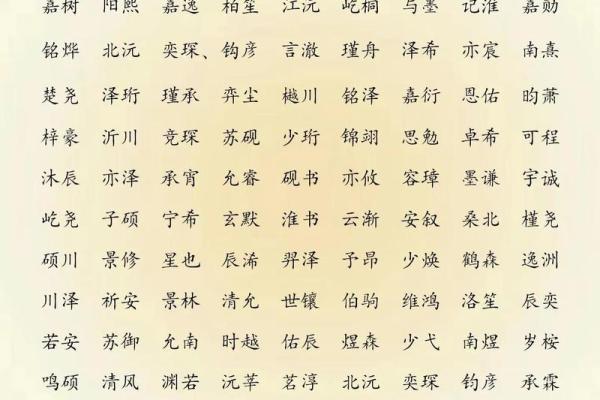 嘉树 阳熙 嘉逸 柏笙 江沅 屹桐 与墨 记淮 嘉勋
铭烨 北沅 奕琛、钧彦 言澈 瑾舟 泽希 亦宸 南熹
楚尧 泽珩 瑾承 弈尘 樾川 铭泽 嘉衍 恩佑 昀萧
梓豪 沂川 竞琛 苏砚 少珩 锦翊 思勉 卓希 可程
沐辰 亦泽 承宵 允睿 砚书 亦攸 容璋 墨谦 宇诚
屹尧 子硕 宁希 玄默 淮书 云渐 安叙 桑北 槿尧
硕川 景修 星也 辰浠 羿泽 予昂 少焕 鹤森 逸洲
川泽 祈安 景林 清允 世镶 伯驹 维鸿 洛笙 辰奕
若安 苏御 允南 时越 佑辰 煜森 少弋 南煜 岁桉
鸣硕 清风 渊若 沅莘 茗淳 北沅 奕琛 钧彦 承霖